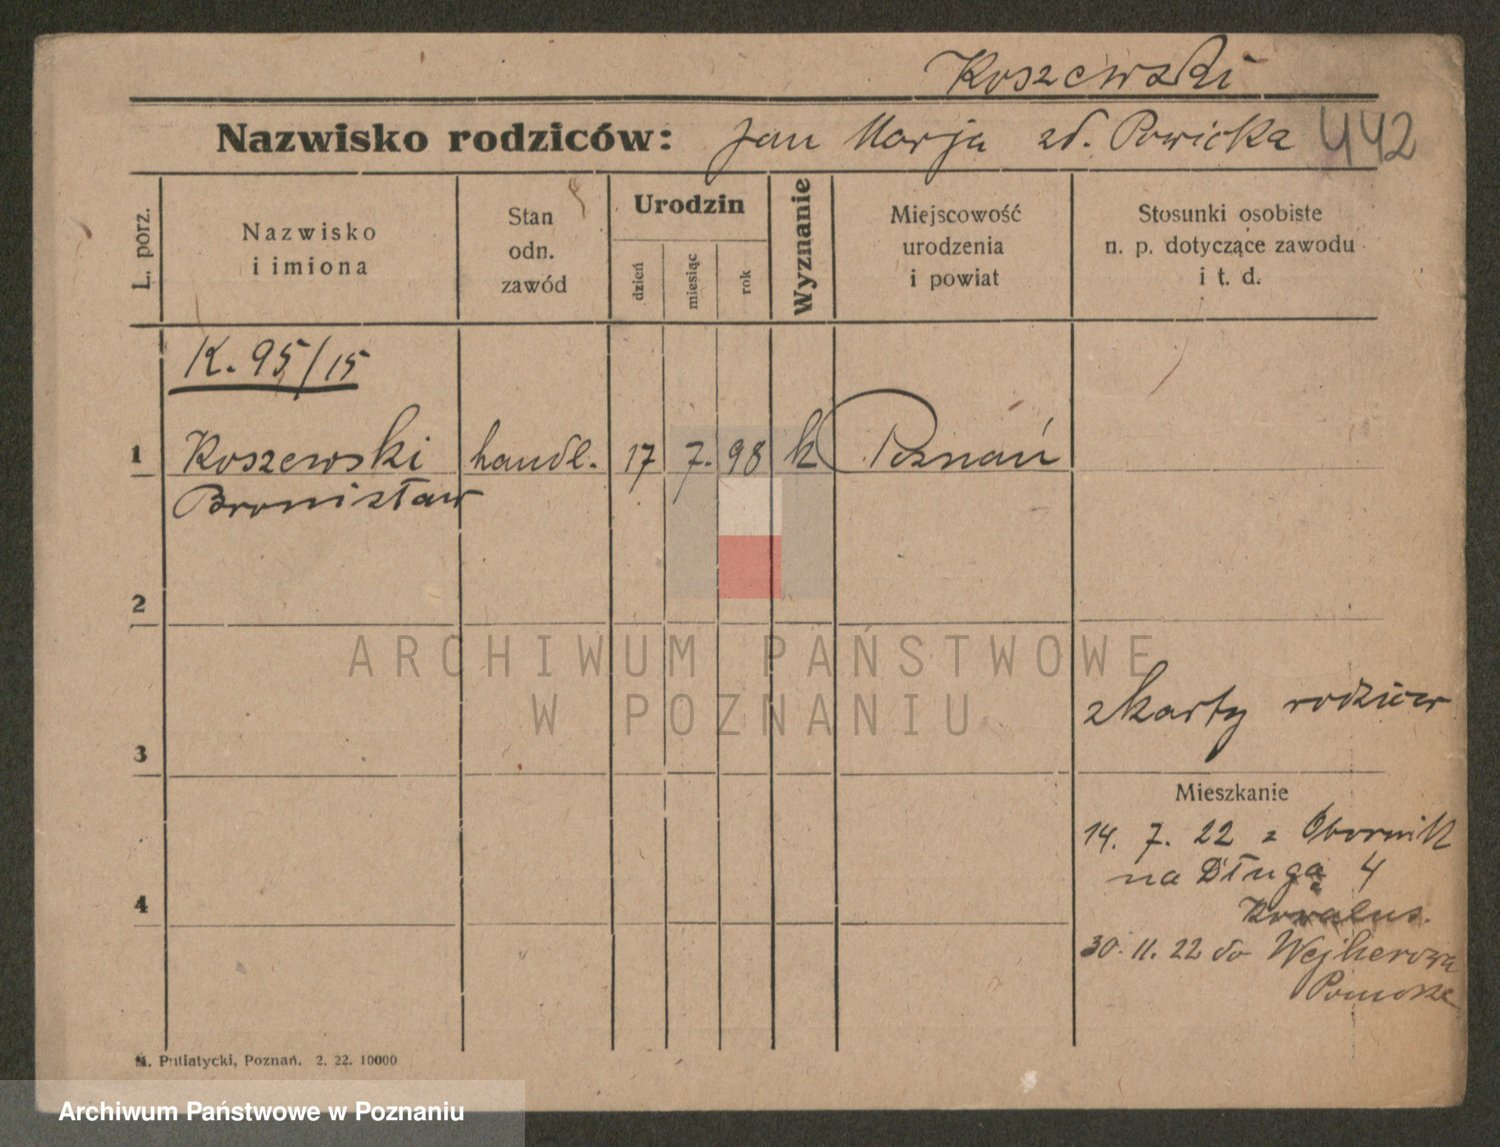 Koszewski
Nazwisko rodziców: Jan Marja zd. Powicka 442
L. porz.
Nazwisko
i imiona
Stan
odn.
zawód
Urodzin
dzień
miesiąc
rok
Wyznanie
Miejscowość
urodzenia
i powiat
Stosunki osobiste
n. p. dotyczące zawodu
i t. d.
K. 95/15
1 Koszewski handl. 17 7. 98 k Poznań
Bronisław
2
ARCHIWUM PAŃSTWOWE
W POZNANIU
z karty rodziców
3
Mieszkanie
14. 7. 22 z Obornik
na Długą 4
4
30. 11. 22 do Wejherowa
Pomorze
M. Putiatycki, Poznań. 2. 22. 10000
Archiwum Państwowe w Poznaniu